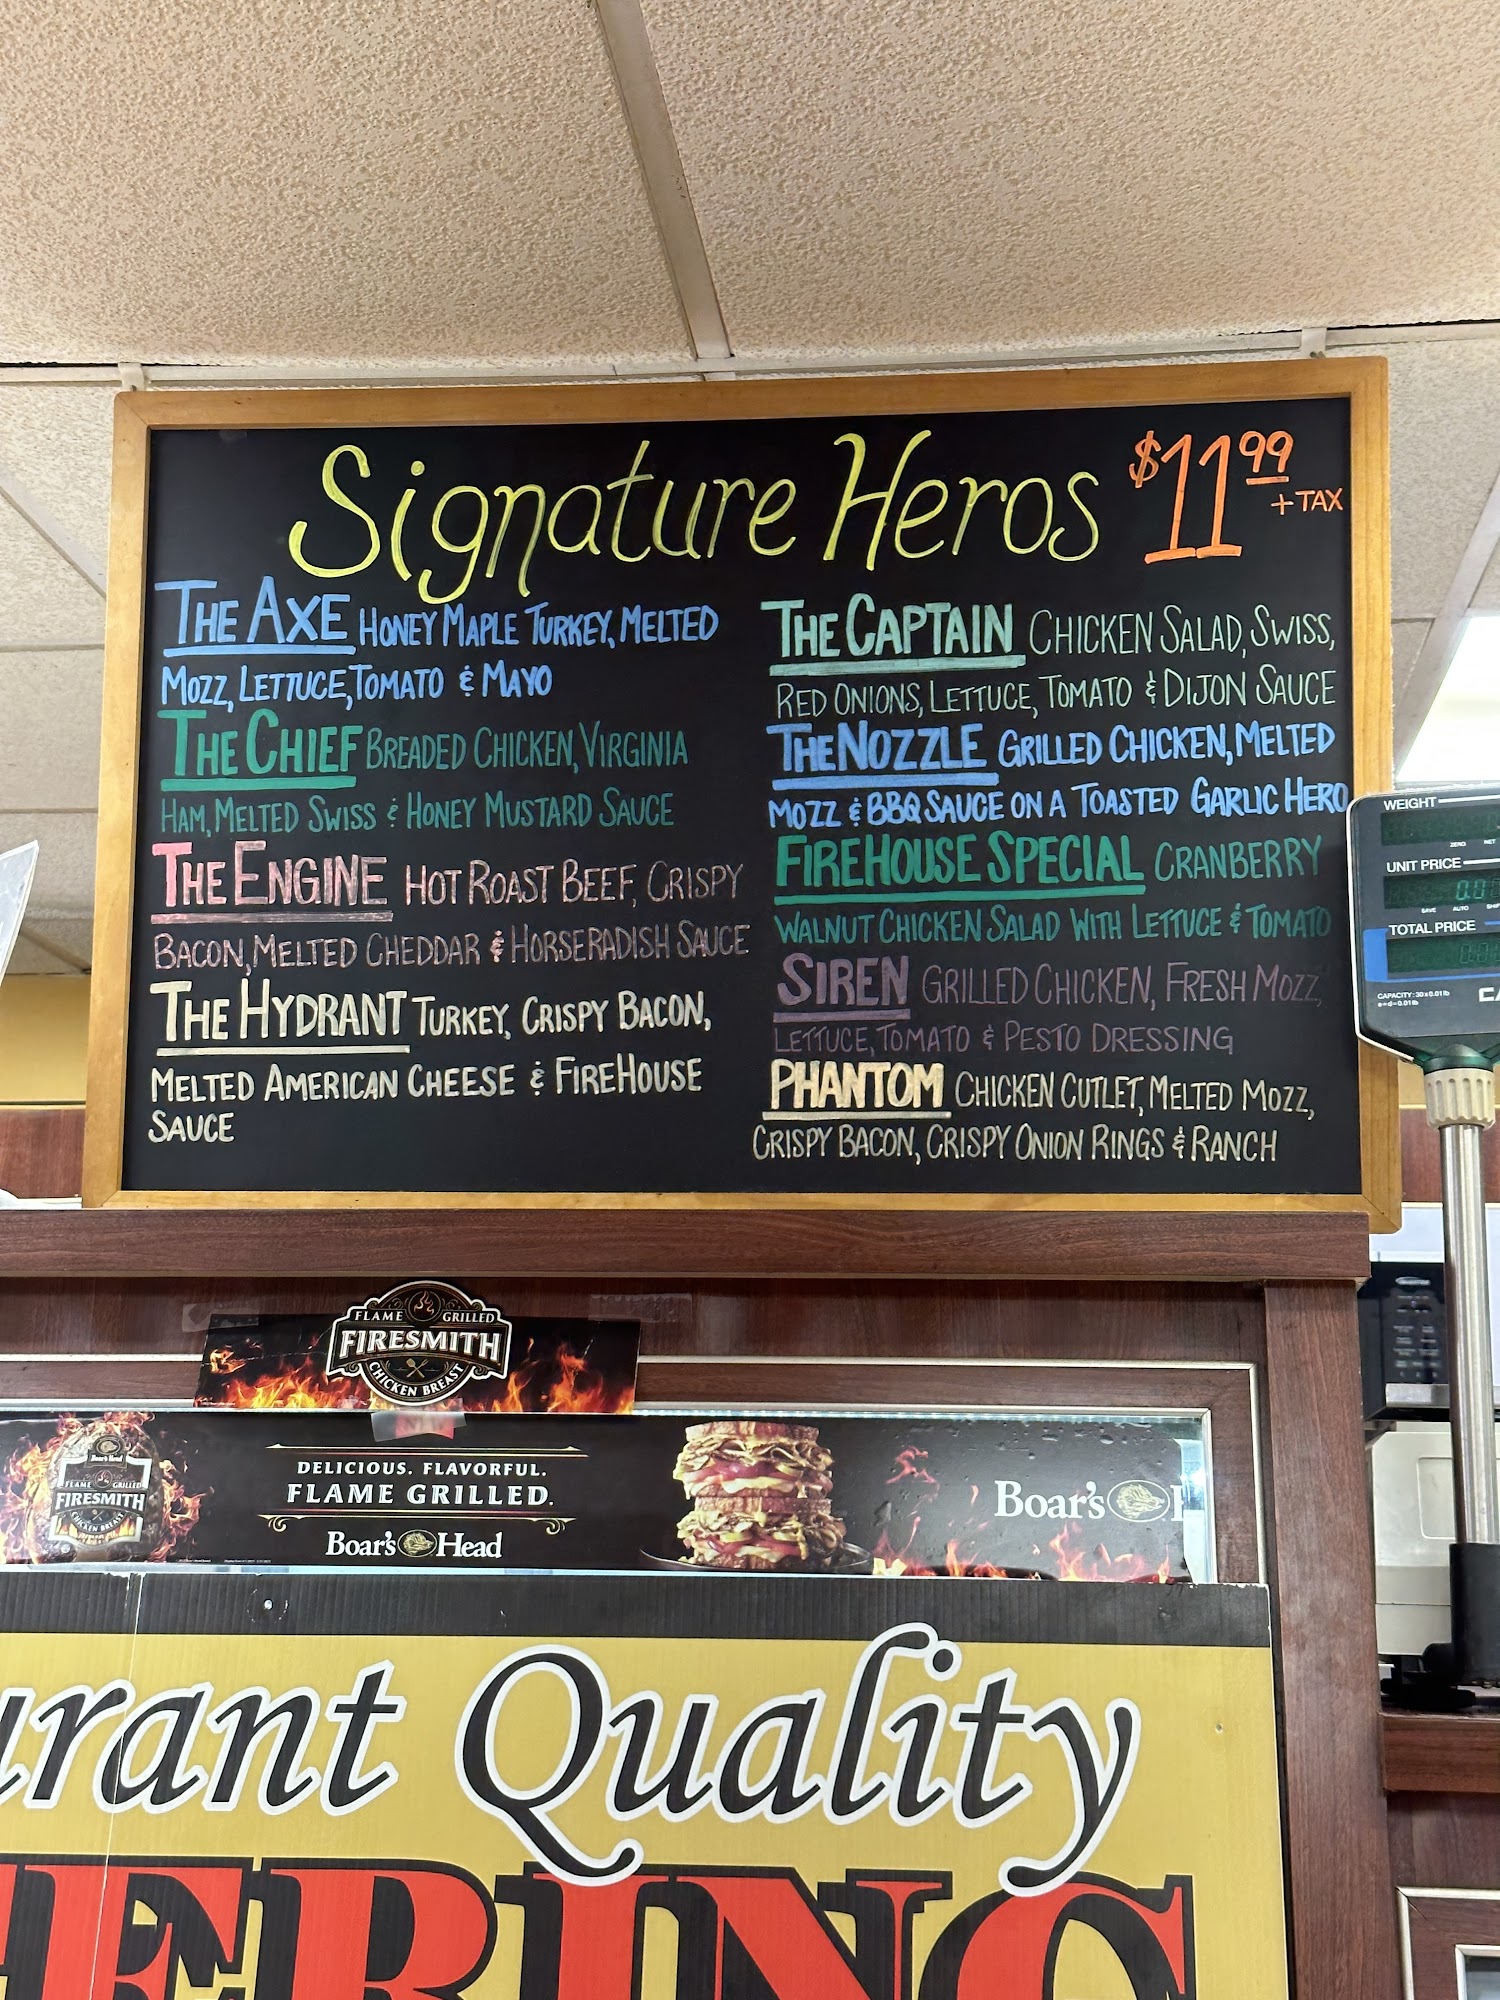 Signature Heros $11.99
+ TAX
THE AXE HONEY MAPLE TURKEY, MELTED
MOZZ, LETTUCE, TOMATO & MAYO
THE CHIEF BREADED CHICKEN, VIRGINIA
HAM, MELTED SWISS & HONEY MUSTARD SAUCE
THE ENGINE HOT ROAST BEEF, CRISPY
BACON, MELTED CHEDDAR & HORSERADISH SAUCE
THE HYDRANT TURKEY, CRISPY BACON,
MELTED AMERICAN CHEESE & FIREHOUSE
SAUCE
THE CAPTAIN CHICKEN SALAD, SWISS,
RED ONIONS, LETTUCE, TOMATO & DIJON SAUCE
THE NOZZLE GRILLED CHICKEN, MELTED
MOZZ & BBQ SAUCE ON A TOASTED GARLIC HERO
FIREHOUSE SPECIAL CRANBERRY
WALNUT CHICKEN SALAD WITH LETTUCE & TOMATO
SIREN GRILLED CHICKEN, FRESH MOZZ,
LETTUCE, TOMATO & PESTO DRESSING
PHANTOM CHICKEN CUTLET, MELTED MOZZ,
CRISPY BACON, CRISPY ONION RINGS & RANCH
WEIGHT
ZERO NET
UNIT PRICE
SAVE AUTO
TOTAL PRICE
CAPACITY: 30 x 0.01 lb
e=d=0.01lb
FLAME GRILLED
FIRESMITH
CHICKEN BREAST
Boar's Head
FLAME GRILLED
FIRESMITH
CHICKEN BREAST
DELICIOUS. FLAVORFUL.
FLAME GRILLED.
Boar's Head
Boar's H
urant Quality
ERING